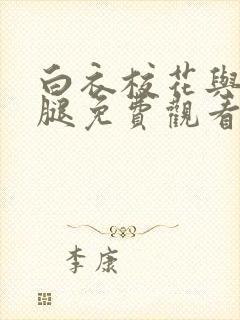 白衣校花與
腿免費觀看
李康